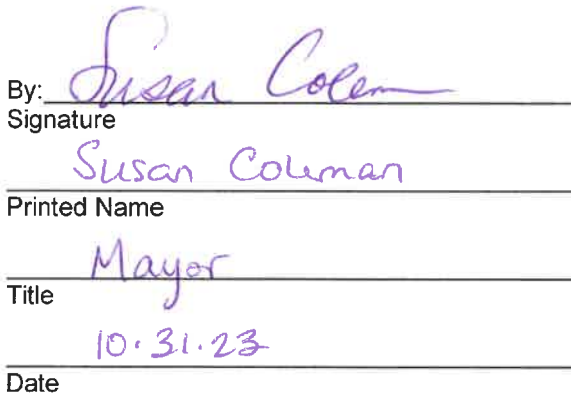 By: Susan Coleman
Signature
Susan Coleman
Printed Name
Mayor
Title
10.31.23
Date